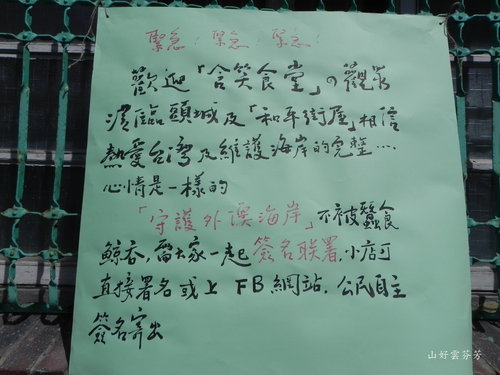 緊急！緊急！緊急！
歡迎「含笑食堂」の觀眾
濱臨頭城及「和平街屋」相信
熱愛台灣及維護海岸的完整....
心情是一樣的
「守護外澳海岸」不被蠶食
鯨吞,需大家一起簽名联署.小店可
直接署名或上 FB網站.公民自主
簽名寄出
山好雲芬芳